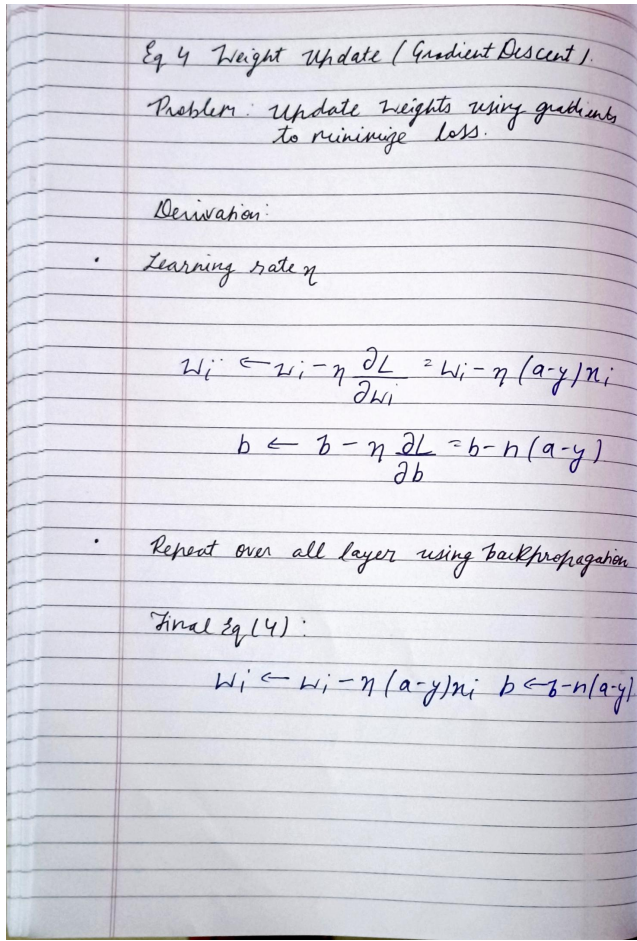 Eq 4 Weight Update (Gradient Descent).
Problem: Update Weights using gradients
to minimize loss.
Derivation:
• Learning rate η
wi ← wi - η ∂L/∂wi = wi - η (a-y)xi
b ← b - η ∂L/∂b = b - η (a-y)
• Repeat over all layer using backpropagation
Final Eq (4):
wi ← wi - η (a-y)xi b ← b-η(a-y)